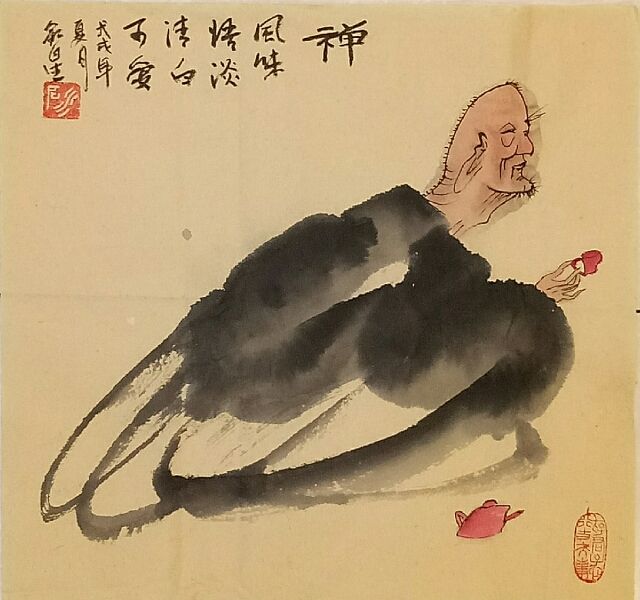 禅
風味
恬淡
清白
可愛
戊戌年
夏月